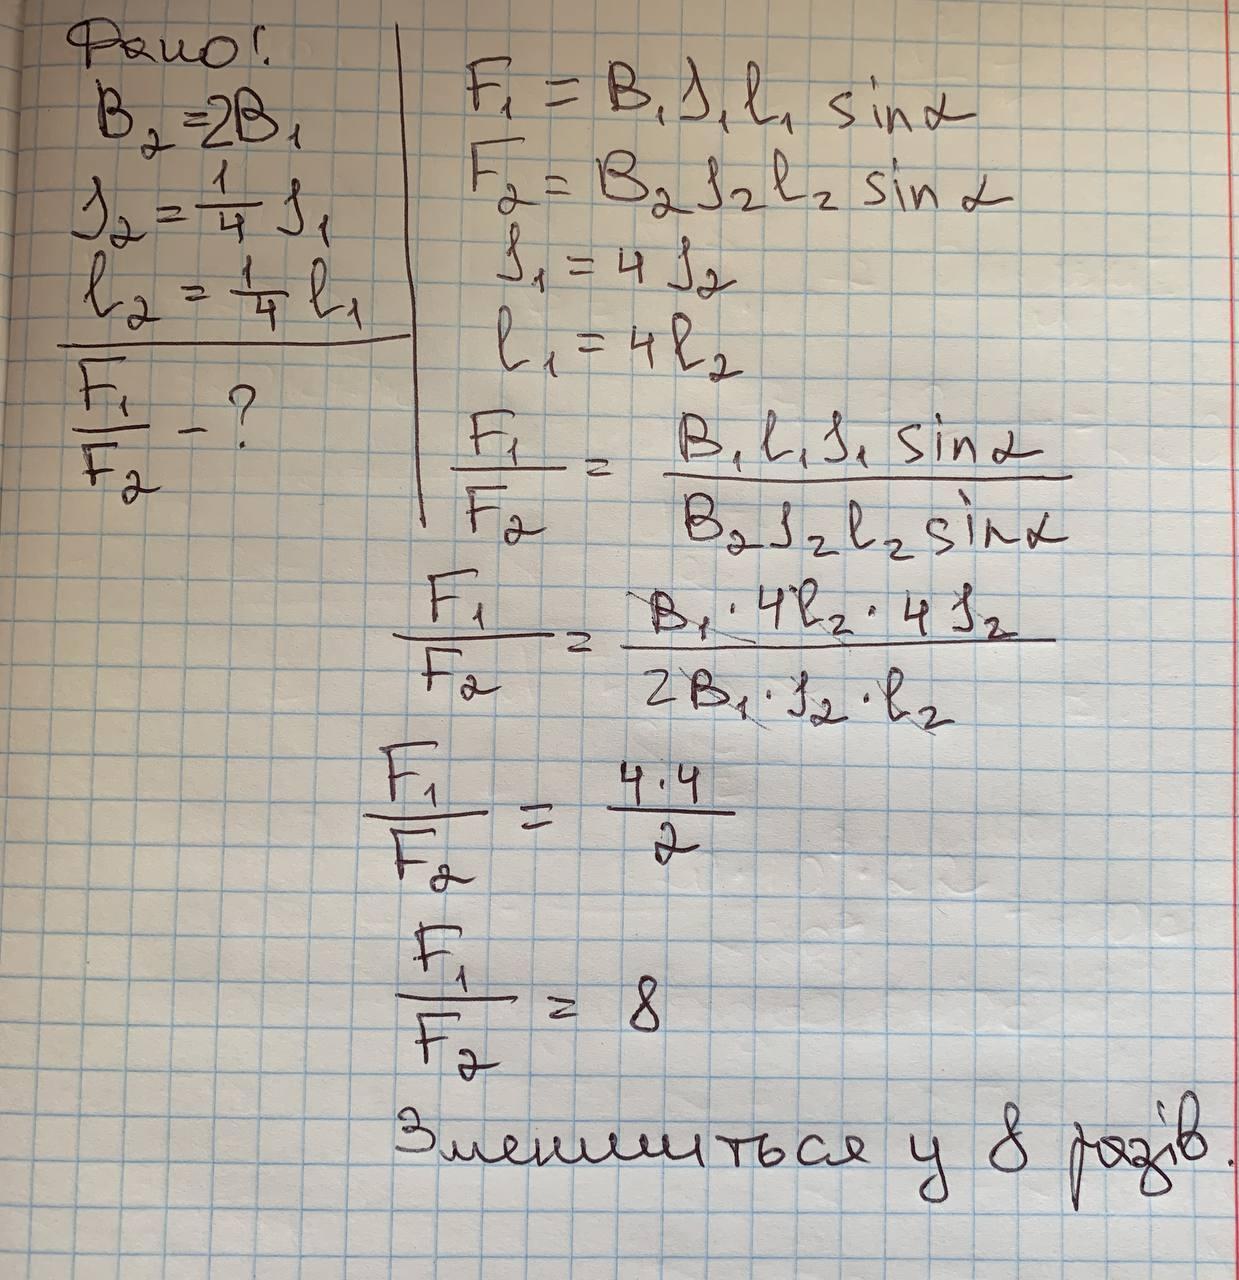 Дано:
B₂ = 2B₁
I₂ = 1/4 I₁
l₂ = 1/4 l₁
F₁/F₂ - ?
F₁ = B₁I₁l₁ sinα
F₂ = B₂I₂l₂ sinα
I₁ = 4I₂
l₁ = 4l₂
F₁/F₂ = B₁l₁I₁ sinα / B₂I₂l₂ sinα
F₁/F₂ = B₁·4l₂·4I₂ / 2B₁·I₂·l₂
F₁/F₂ = 4·4/2
F₁/F₂ = 8
Зменшиться у 8 разів.